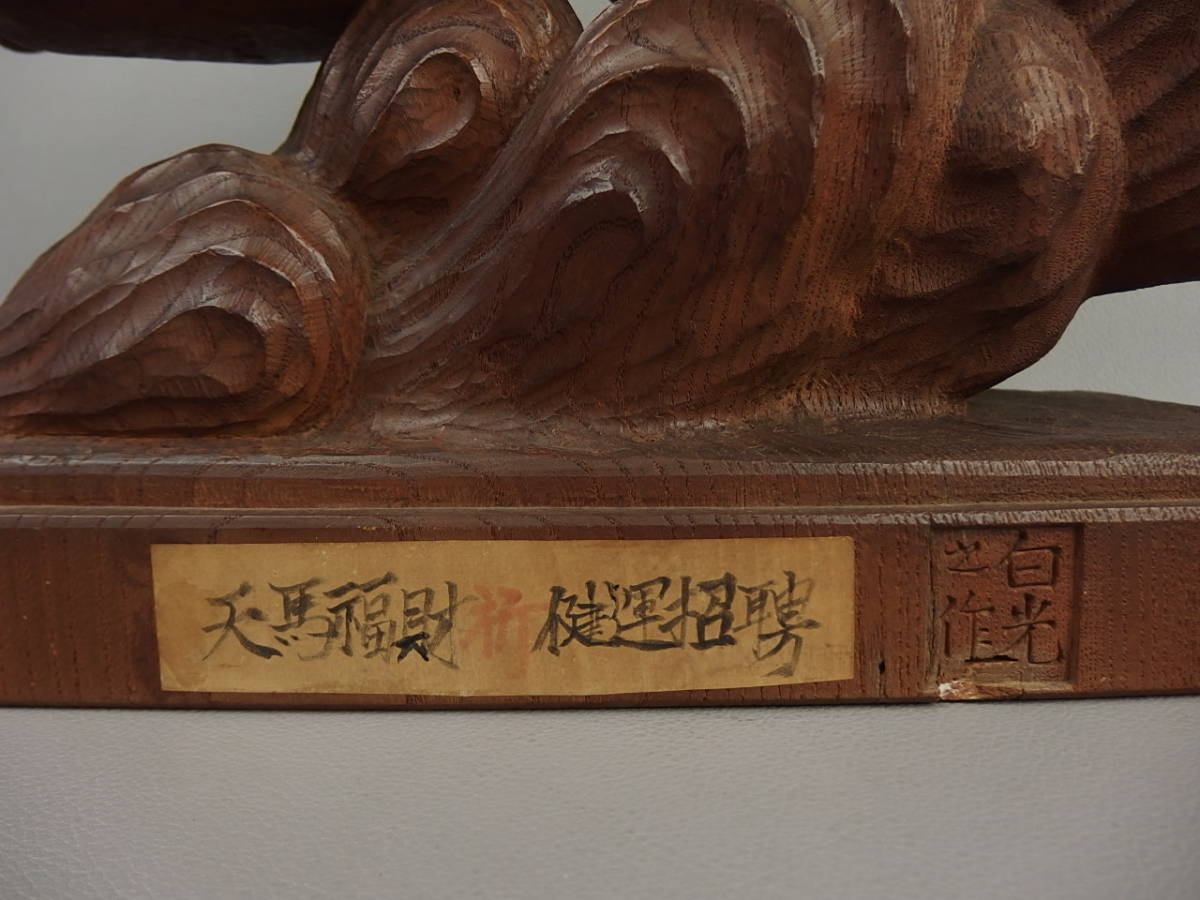 天馬福財祈健運招聘
白光
之作